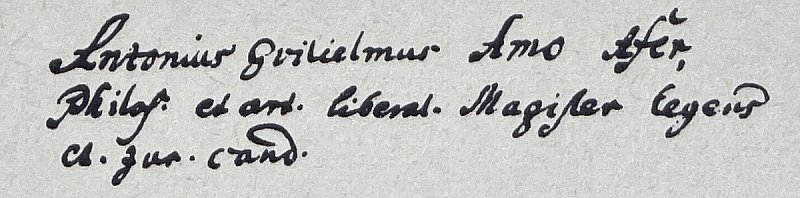 Antonius Gvilielmus Amo Afer,
Philos. et art. liberal. Magister legens
et. Jur. cand.